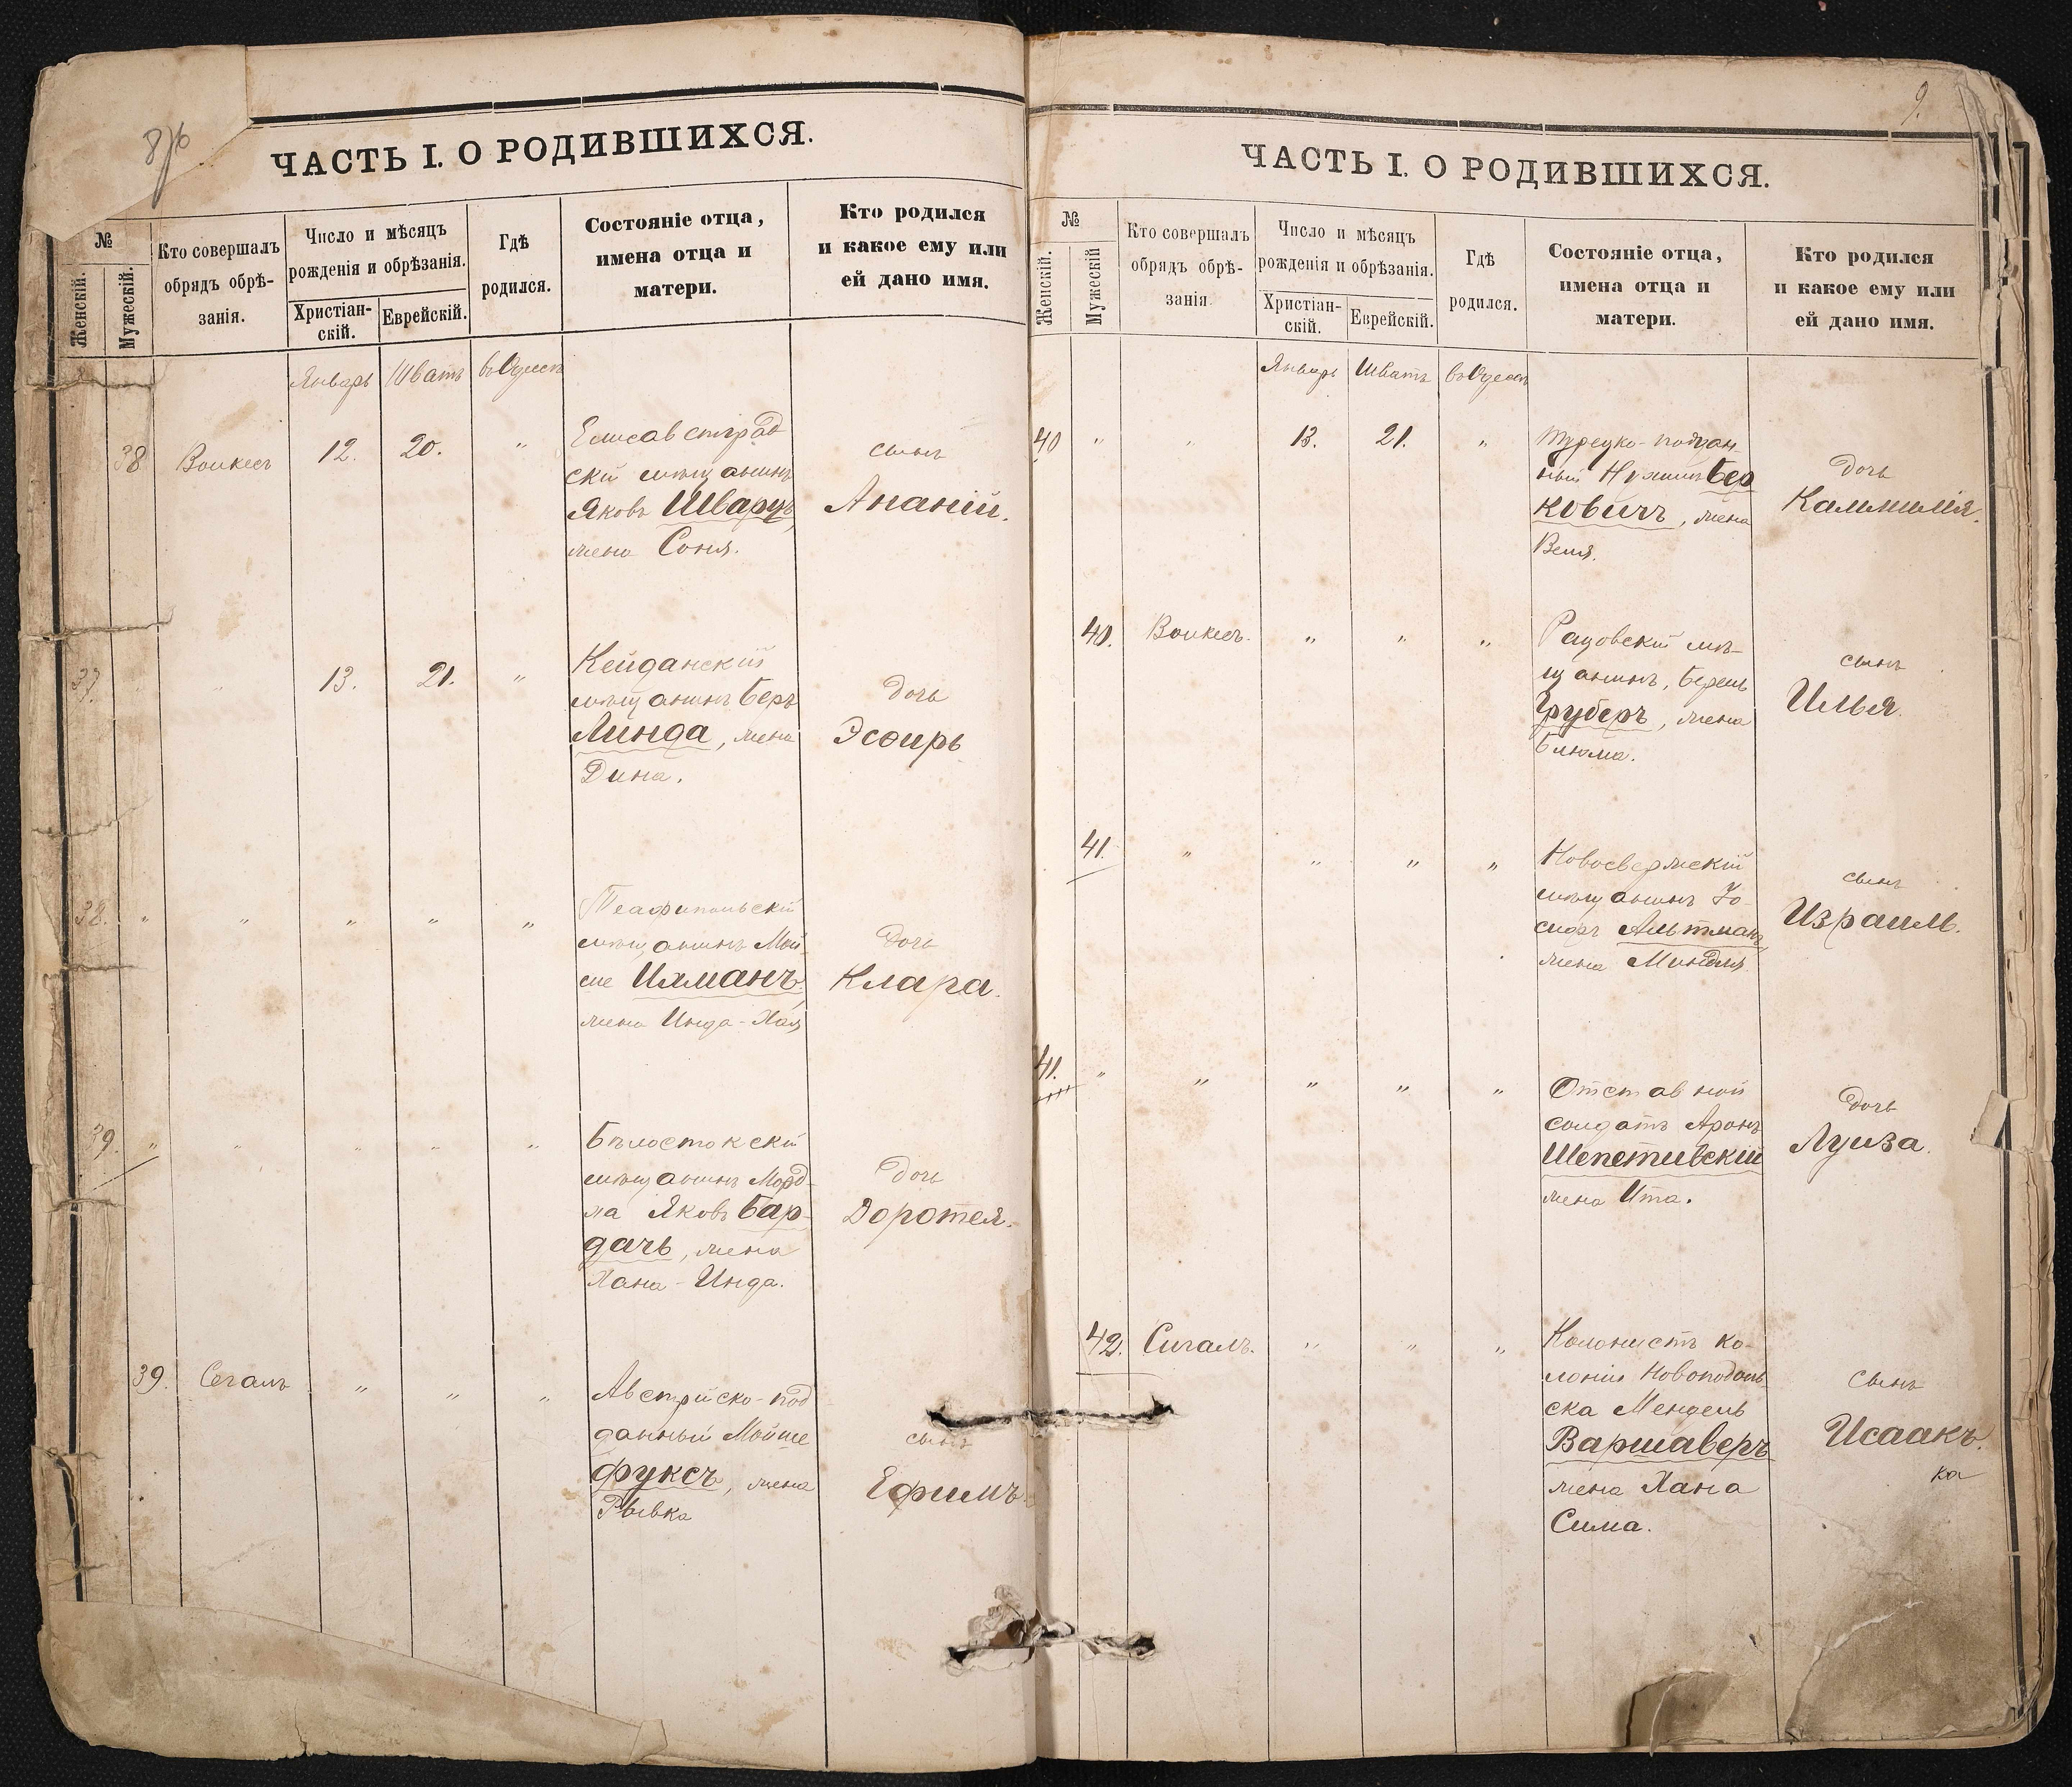 8/об
ЧАСТЬ I. О РОДИВШИХСЯ.
№
Женскій.
Мужескій.
Кто совершалъ
обрядъ обрѣ-
занія.
Число и мѣсяцъ
рожденія и обрѣзанія.
Христіан-
скій.
Еврейскій.
Гдѣ
родился.
Состояніе отца,
имена отца и
матери.
Кто родился
и какое ему или
ей дано имя.
Январь Шватъ въ Одессѣ
38 Воикесъ 12. 20. "
Елисаветград
скій мѣщанинъ
Яковъ Шварцъ,
жена Соня.
сынъ
Ананій.
37. " " 13. 21. "
Кейданскій
мѣщанинъ Беръ
Линда, жена
Дина.
дочь
Эсѳирь
38. " " " " "
Теофипольскій
мѣщанинъ Мой
ше Ихманъ,
жена Инда-Хая
дочь
Клара.
39. " " " " "
Бѣлостокскій
мѣщанинъ Морд-
ха Яковъ Бар-
дачъ, жена
Хана-Инда.
дочь
Доротея.
39. Сегалъ " " "
Австрійско-под
данный Мойше
Фуксъ, жена
Рывка
сынъ
Ефимъ.
9.
ЧАСТЬ I. О РОДИВШИХСЯ.
№
Женскій.
Мужескій
Кто совершалъ
обрядъ обрѣ-
занія
Число и мѣсяцъ
рожденія и обрѣзанія.
Христіан-
скій.
Еврейскій.
Гдѣ
родился.
Состояніе отца,
имена отца и
матери.
Кто родился
и какое ему или
ей дано имя.
Январь Шватъ въ Одессѣ
40 " " 13. 21. "
Турецко-поддан
ный Нухимъ Бер
ковичъ, жена
Веля.
дочь
40. Воикесъ. " " "
Рашовскій мѣ-
щанинъ, Берель
Груберъ, жена
Блюма.
сынъ
Илья.
41. " " " "
мѣщанинъ Іо-
сифъ Альтманъ,
жена Миндля
сынъ
Израиль.
41. " " " " "
Отставной
солдатъ Аронъ
Шепетивскій
жена Ита.
дочь
Луиза.
42. Сигалъ. " " "
Колонистъ ко-
лоніи Новоподоль-
ска Мендель
Варшаверъ
жена Хана
Сима.
сынъ
Исаакъ.
ка